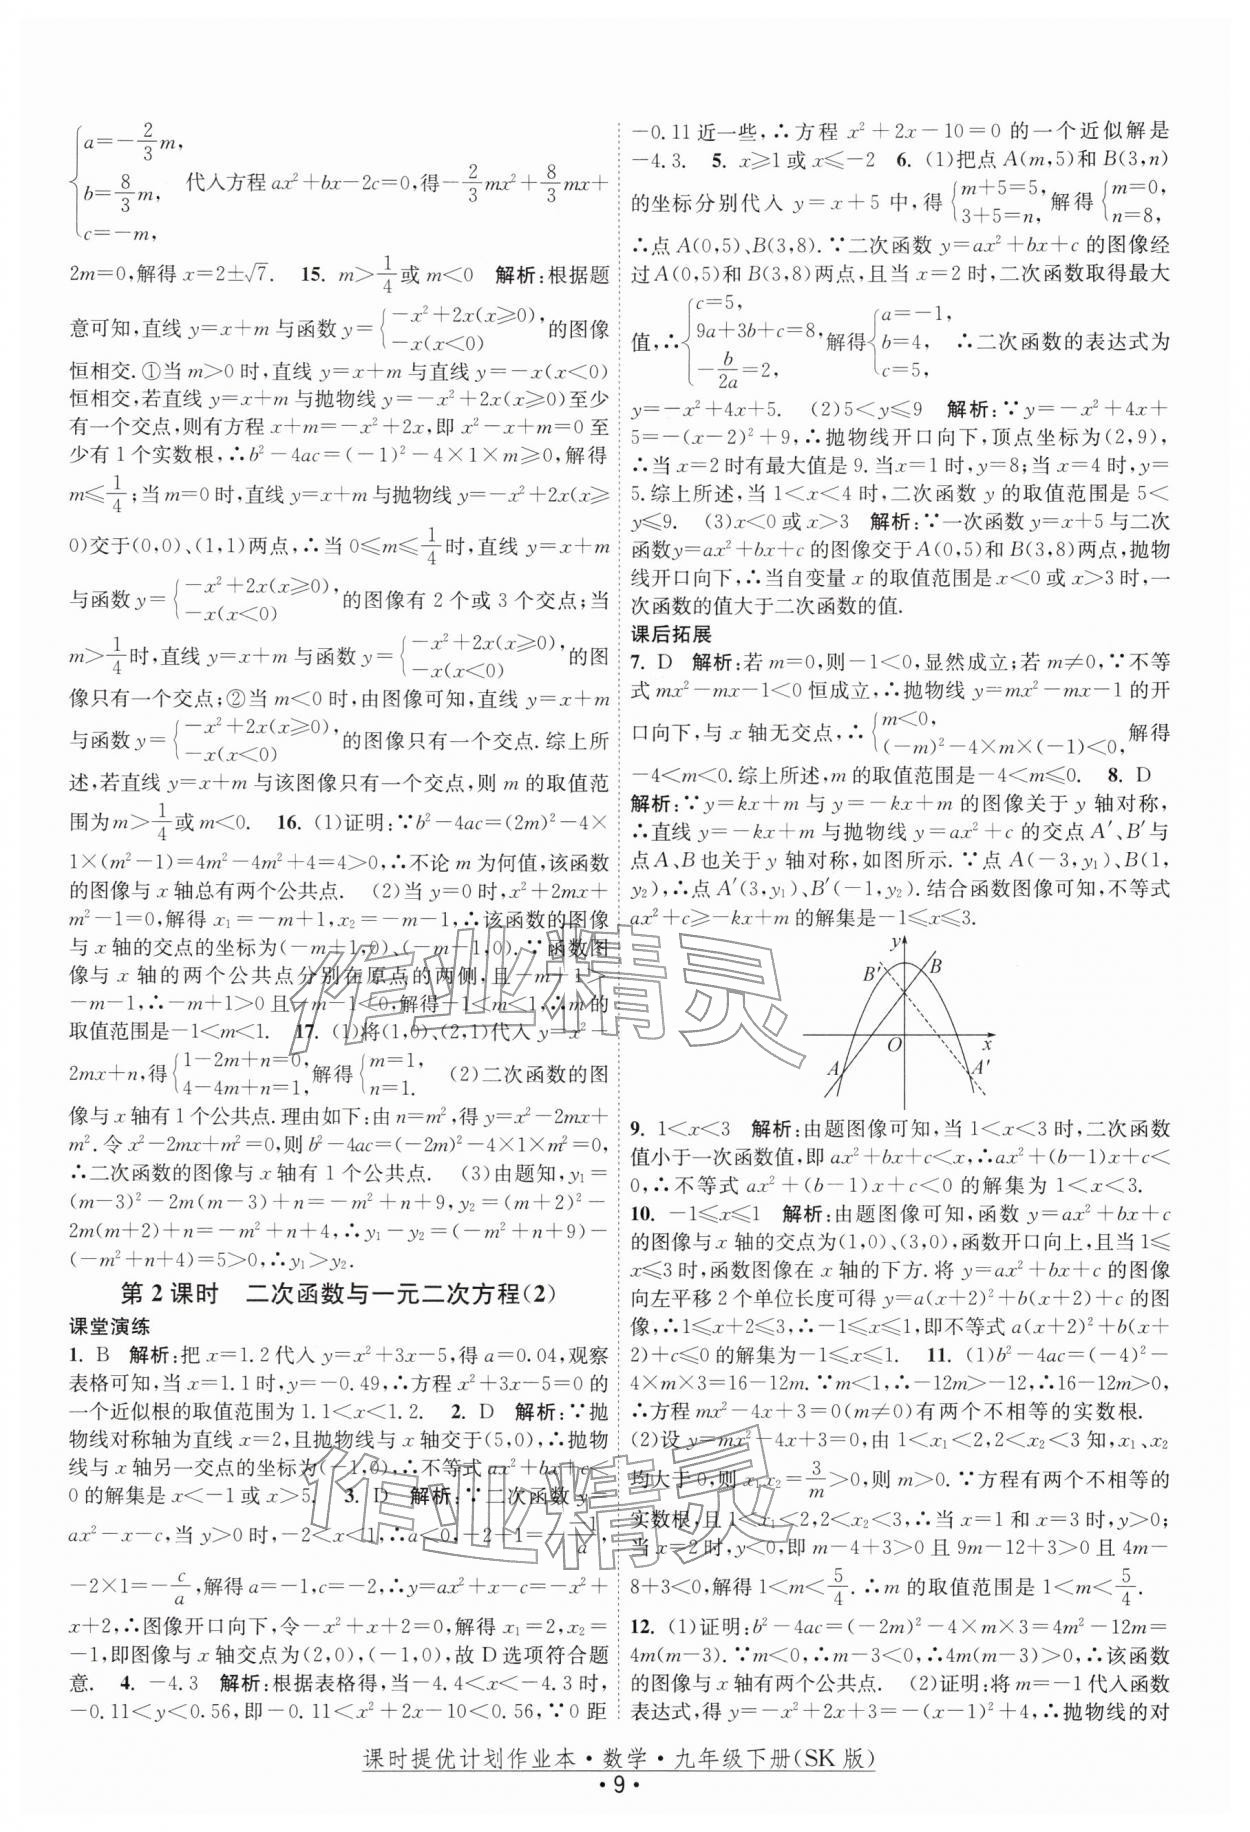 {a=-2/3m,
b=8/3m, 代入方程 ax²+bx-2c=0,得-2/3mx²+8/3mx+
c=-m,
2m=0,解得 x=2±√7. 15. m>1/4或 m<0 解析:根据题
意可知,直线 y=x+m 与函数 y={-x²+2x(x≥0),-x(x<0) 的图像
恒相交.①当 m>0 时,直线 y=x+m 与直线 y=-x(x<0)
恒相交,若直线 y=x+m 与抛物线 y=-x²+2x(x≥0)至少
有一个交点,则有方程 x+m=-x²+2x,即 x²-x+m=0 至
少有 1 个实数根,∴b²-4ac=(-1)²-4×1×m≥0,解得
m≤1/4;当 m=0 时,直线 y=x+m 与抛物线 y=-x²+2x(x≥
0)交于(0,0)、(1,1)两点,∴当 0≤m≤1/4时,直线 y=x+m
与函数 y={-x²+2x(x≥0),-x(x<0) 的图像有 2 个或 3 个交点;当
m>1/4时,直线 y=x+m 与函数 y={-x²+2x(x≥0),-x(x<0) 的图
像只有一个交点;②当 m<0 时,由图像可知,直线 y=x+m
与函数 y={-x²+2x(x≥0),-x(x<0) 的图像只有一个交点.综上所
述,若直线 y=x+m 与该图像只有一个交点,则 m 的取值范
围为 m>1/4或 m<0. 16. (1)证明:∵b²-4ac=(2m)²-4×
1×(m²-1)=4m²-4m²+4=4>0,∴不论 m 为何值,该函数
的图像与 x 轴总有两个公共点. (2)当 y=0 时,x²+2mx+
m²-1=0,解得 x₁=-m+1,x₂=-m-1,∴该函数的图像
与 x 轴的交点的坐标为(-m+1,0)、(-m-1,0).∵函数图
像与 x 轴的两个公共点分别在原点的两侧,且-m+1>
-m-1,∴-m+1>0 且-m-1<0,解得-1<m<1,∴m 的
取值范围是-1<m<1. 17. (1)将(1,0)、(2,1)代入 y=x²-
2mx+n,得{1-2m+n=0,4-4m+n=1, 解得{m=1,n=1. (2)二次函数的图
像与 x 轴有 1 个公共点.理由如下:由 n=m²,得 y=x²-2mx+
m².令 x²-2mx+m²=0,则 b²-4ac=(-2m)²-4×1×m²=0,
∴二次函数的图像与 x 轴有 1 个公共点. (3)由题知,y₁=
(m-3)²-2m(m-3)+n=-m²+n+9,y₂=(m+2)²-
2m(m+2)+n=-m²+n+4,∴y₁-y₂=(-m²+n+9)-
(-m²+n+4)=5>0,∴y₁>y₂.
第 2 课时 二次函数与一元二次方程(2)
课堂演练
1. B 解析:把 x=1.2 代入 y=x²+3x-5,得 a=0.04,观察
表格可知,当 x=1.1 时,y=-0.49,∴方程 x²+3x-5=0 的
一个近似根的取值范围为 1.1<x<1.2. 2. D 解析:∵抛
物线对称轴为直线 x=2,且抛物线与 x 轴交于(5,0),∴抛物
线与 x 轴另一交点的坐标为(-1,0),∴不等式 ax²+bx+c<
0 的解集是 x<-1 或 x>5. 3. D 解析:∵二次函数 y=
ax²-x-c,当 y>0 时,-2<x<1,∴a<0,-2+1=1/a,
-2×1=-c/a,解得 a=-1,c=-2,∴y=ax²+x-c=-x²+
x+2,∴图像开口向下,令-x²+x+2=0,解得 x₁=2,x₂=
-1,即图像与 x 轴交点为(2,0),(-1,0),故 D 选项符合题
意. 4. -4.3 解析:根据表格得,当-4.4<x<-4.3 时,
-0.11<y<0.56,即-0.11<x²+2x-10<0.56,∵0 距
-0.11 近一些,∴方程 x²+2x-10=0 的一个近似解是
-4.3. 5. x≥1 或 x≤-2 6. (1)把点 A(m,5)和 B(3,n)
的坐标分别代入 y=x+5 中,得{m+5=5,3+5=n, 解得{m=0,n=8,
∴点 A(0,5)、B(3,8).∵二次函数 y=ax²+bx+c 的图像经
过 A(0,5)和 B(3,8)两点,且当 x=2 时,二次函数取得最大
值,∴{c=5,9a+3b+c=8,-b/2a=2, 解得{a=-1,b=4,c=5, ∴二次函数的表达式为
y=-x²+4x+5. (2)5<y≤9 解析:∵y=-x²+4x+
5=-(x-2)²+9,∴抛物线开口向下,顶点坐标为(2,9),
∴当 x=2 时有最大值是 9.当 x=1 时,y=8;当 x=4 时,y=
5.综上所述,当 1<x<4 时,二次函数 y 的取值范围是 5<
y≤9. (3)x<0 或 x>3 解析:∵一次函数 y=x+5 与二次
函数 y=ax²+bx+c 的图像交于 A(0,5)和 B(3,8)两点,抛物
线开口向下,∴当自变量 x 的取值范围是 x<0 或 x>3 时,一
次函数的值大于二次函数的值.
课后拓展
7. D 解析:若 m=0,则-1<0,显然成立;若 m≠0,∵不等
式 mx²-mx-1<0 恒成立,∴抛物线 y=mx²-mx-1 的开
口向下,与 x 轴无交点,∴{m<0,(-m)²-4×m×(-1)<0, 解得
-4<m<0.综上所述,m 的取值范围是-4<m≤0. 8. D
解析:∵y=kx+m 与 y=-kx+m 的图像关于 y 轴对称,
∴直线 y=-kx+m 与抛物线 y=ax²+c 的交点 A′、B′与
点 A、B 也关于 y 轴对称,如图所示.∵点 A(-3,y₁)、B(1,
y₂),∴点 A′(3,y₁)、B′(-1,y₂).结合函数图像可知,不等式
ax²+c≥-kx+m 的解集是-1≤x≤3.
y
B′ B
O x
A A′
9. 1<x<3 解析:由题图像可知,当 1<x<3 时,二次函数
值小于一次函数值,即 ax²+bx+c<x,∴ax²+(b-1)x+c<
0,∴不等式 ax²+(b-1)x+c<0 的解集为 1<x<3.
10. -1≤x≤1 解析:由题图像可知,函数 y=ax²+bx+c
的图像与 x 轴的交点为(1,0)、(3,0),函数开口向上,且当 1≤
x≤3 时,函数图像在 x 轴的下方.将 y=ax²+bx+c 的图像
向左平移 2 个单位长度可得 y=a(x+2)²+b(x+2)+c 的图
像,∴1≤x+2≤3,∴-1≤x≤1,即不等式 a(x+2)²+b(x+
2)+c≤0 的解集为-1≤x≤1. 11. (1)b²-4ac=(-4)²-
4×m×3=16-12m.∵m<1,∴-12m>-12,∴16-12m>0,
∴方程 mx²-4x+3=0(m≠0)有两个不相等的实数根.
(2)设 y=mx²-4x+3=0,由 1<x₁<2,2<x₂<3 知,x₁、x₂
均大于 0,则 x₁x₂=3/m>0,则 m>0.∵方程有两个不相等的
实数根,且 1<x₁<2,2<x₂<3,∴当 x=1 和 x=3 时,y>0;
当 x=2 时,y<0,即 m-4+3>0 且 9m-12+3>0 且 4m-
8+3<0,解得 1<m<5/4.∴m 的取值范围是 1<m<5/4.
12. (1)证明:b²-4ac=(-2m)²-4×m×3=4m²-12m=
4m(m-3).∵m<0,∴m-3<0,∴4m(m-3)>0,∴该函数
的图像与 x 轴有两个公共点. (2)证明:将 m=-1 代入函数
表达式,得 y=-x²+2x+3=-(x-1)²+4,∴抛物线的对
作业精灵
作业精灵
课时提优计划作业本·数学·九年级下册(SK 版)
·9·